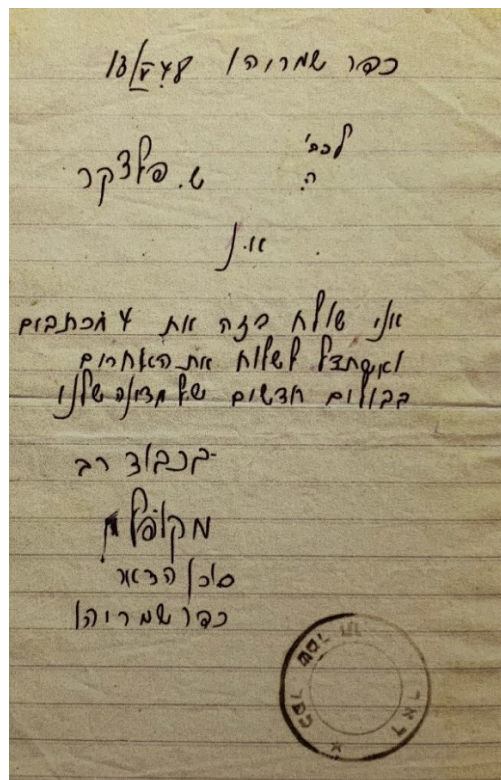 כפר שמריהו
לכב'
ה. ש. פלדקר
א.נ
אני שולח בזה את 4 מכתבים
ואשתדל לשלוח את האחרים
בבולים חדשים של מדינה שלנו
בכבוד רב
סוכן הדאר
כפר שמריהו
דאר